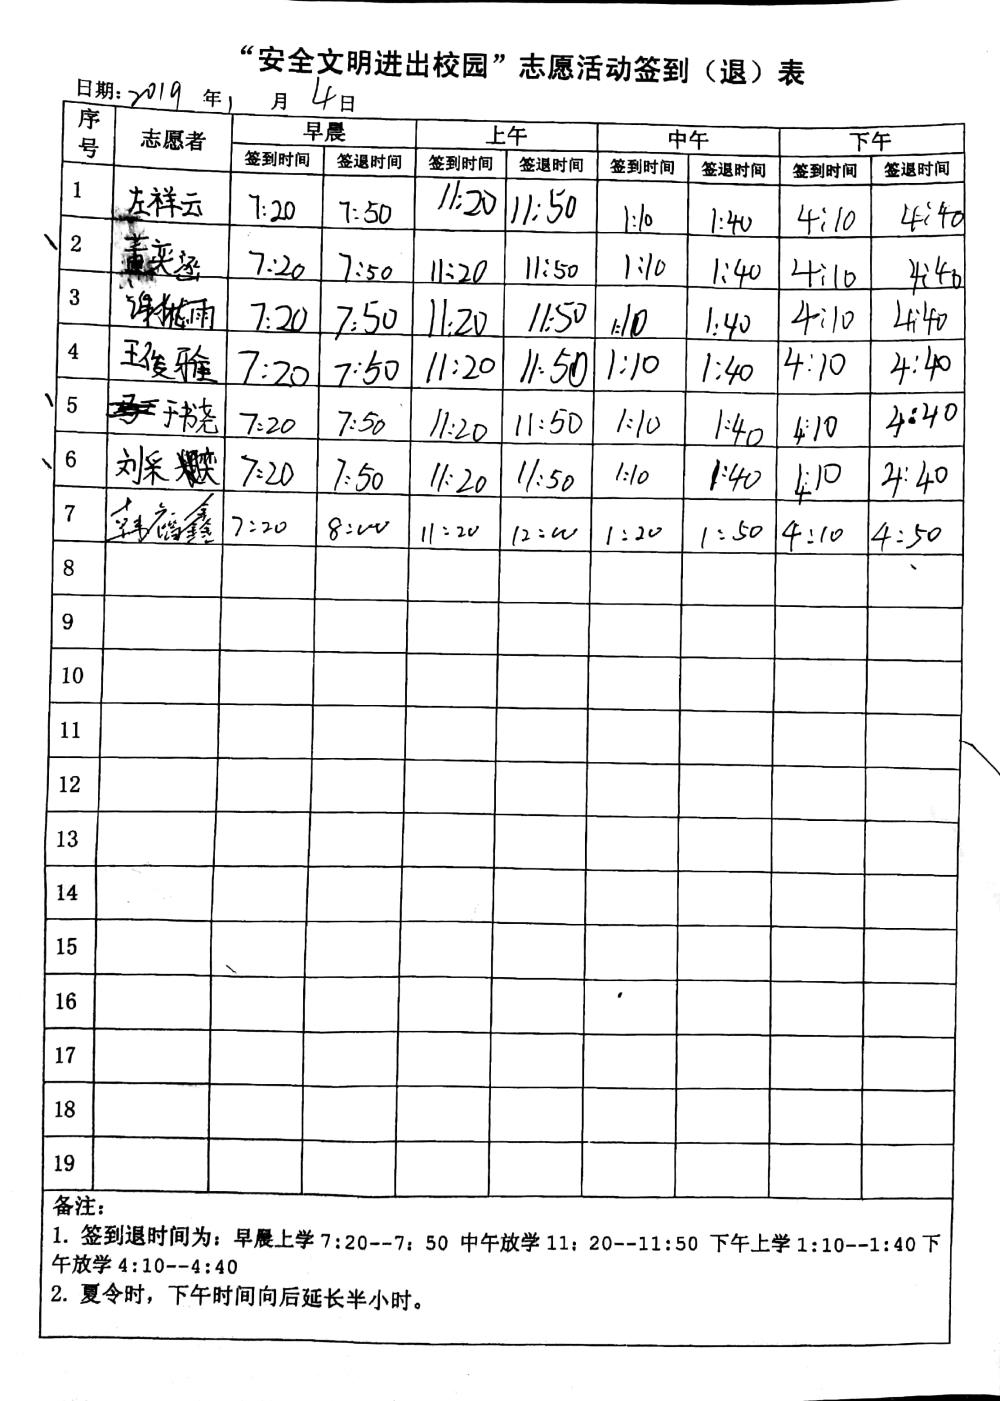 “安全文明进出校园”志愿活动签到（退）表
日期: 2019 年 1 月 4 日
序号 志愿者 早晨 上午 中午 下午
签到时间 签退时间 签到时间 签退时间 签到时间 签退时间 签到时间 签退时间
1 左祥云 7:20 7:50 11:20 11:50 1:10 1:40 4:10 4:40
2 董奕涵 7:20 7:50 11:20 11:50 1:10 1:40 4:10 4:40
3 雨 7:20 7:50 11:20 11:50 1:10 1:40 4:10 4:40
4 王俊雅 7:20 7:50 11:20 11:50 1:10 1:40 4:10 4:40
5 于书尧 7:20 7:50 11:20 11:50 1:10 1:40 4:10 4:40
6 刘采 7:20 7:50 11:20 11:50 1:10 1:40 4:10 4:40
7 韩 鑫 7:20 8:00 11:20 12:00 1:20 1:50 4:10 4:50
8
9
10
11
12
13
14
15
16
17
18
19
备注：
1. 签到退时间为：早晨上学 7:20--7：50 中午放学 11：20--11:50 下午上学 1:10--1:40 下
午放学 4:10--4:40
2. 夏令时，下午时间向后延长半小时。